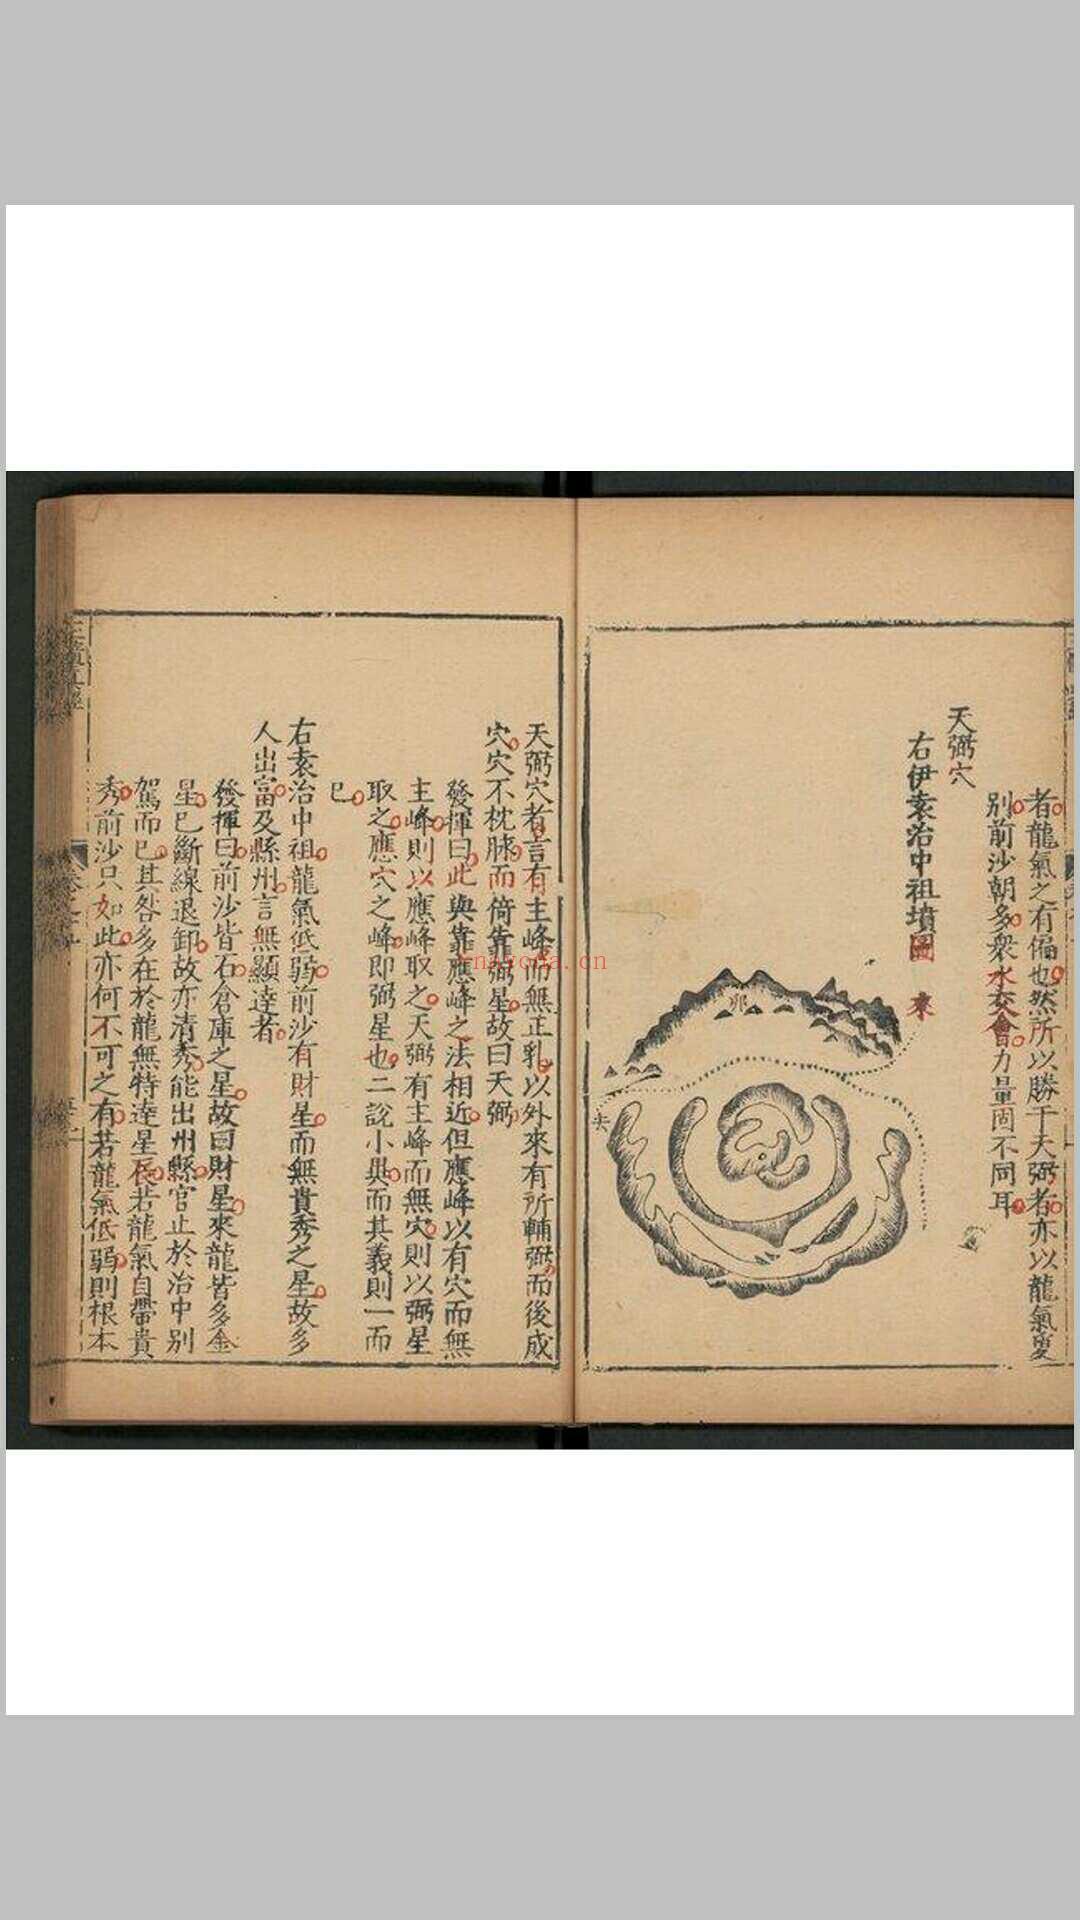 者龍氣之有偏也然所以勝于天弼者亦以龍氣夐
別前沙朝多衆水交會力量固不同耳
天弼穴
右伊袁治中祖墳圖
來
去
天弼穴者言有主峰而無正乳以外來有所輔弼而後成
穴穴不枕脉而倚靠弼星故曰天弼
發揮曰此與靠應峰之法相近但應峰以有穴而無
主峰則以應峰取之天弼有主峰而無穴則以弼星
取之應穴之峰即弼星也二說小異而其義則一而
已
右袁治中祖龍氣低弱前沙有財星而無貴秀之星故多
人出富及縣州言無顯達者
發揮曰前沙皆石倉庫之星故曰財星來龍皆多金
星已斷線退卸故亦清秀能出州縣官止於治中別
駕而已其咎多在於龍無特達星辰若龍氣自帶貴
秀前沙只如此亦何不可之有若龍氣低弱則根本
nayona.cn